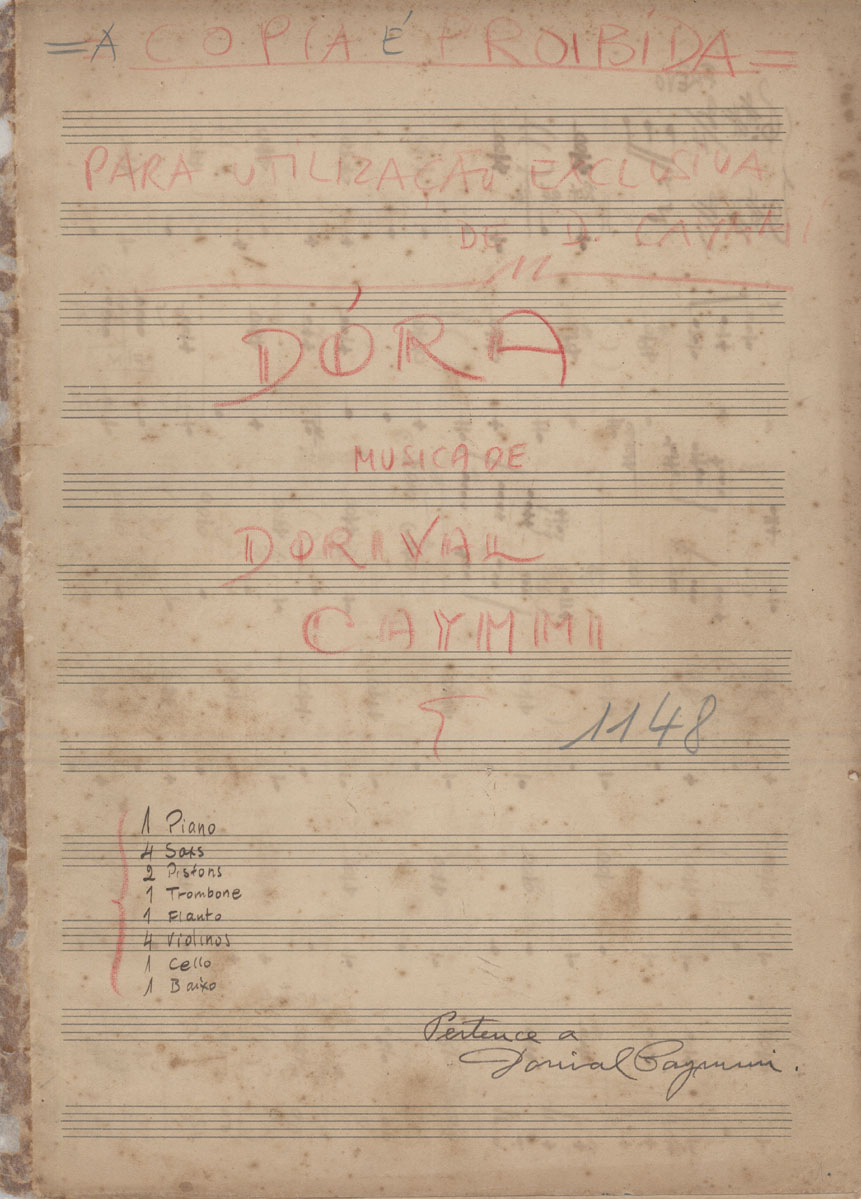 =A COPIA É PROIBÍDA=
PARA UTILIZAÇÃO EXCLUSIVA
DE D. CAYMMI
DÓRA
MUSICA DE
DORIVAL
CAYMMI
1148
1 Piano
4 Saxs
2 Pistons
1 Trombone
1 Flauto
4 Violinos
1 Cello
1 Baixo
Pertence a
Dorival Caymmi.